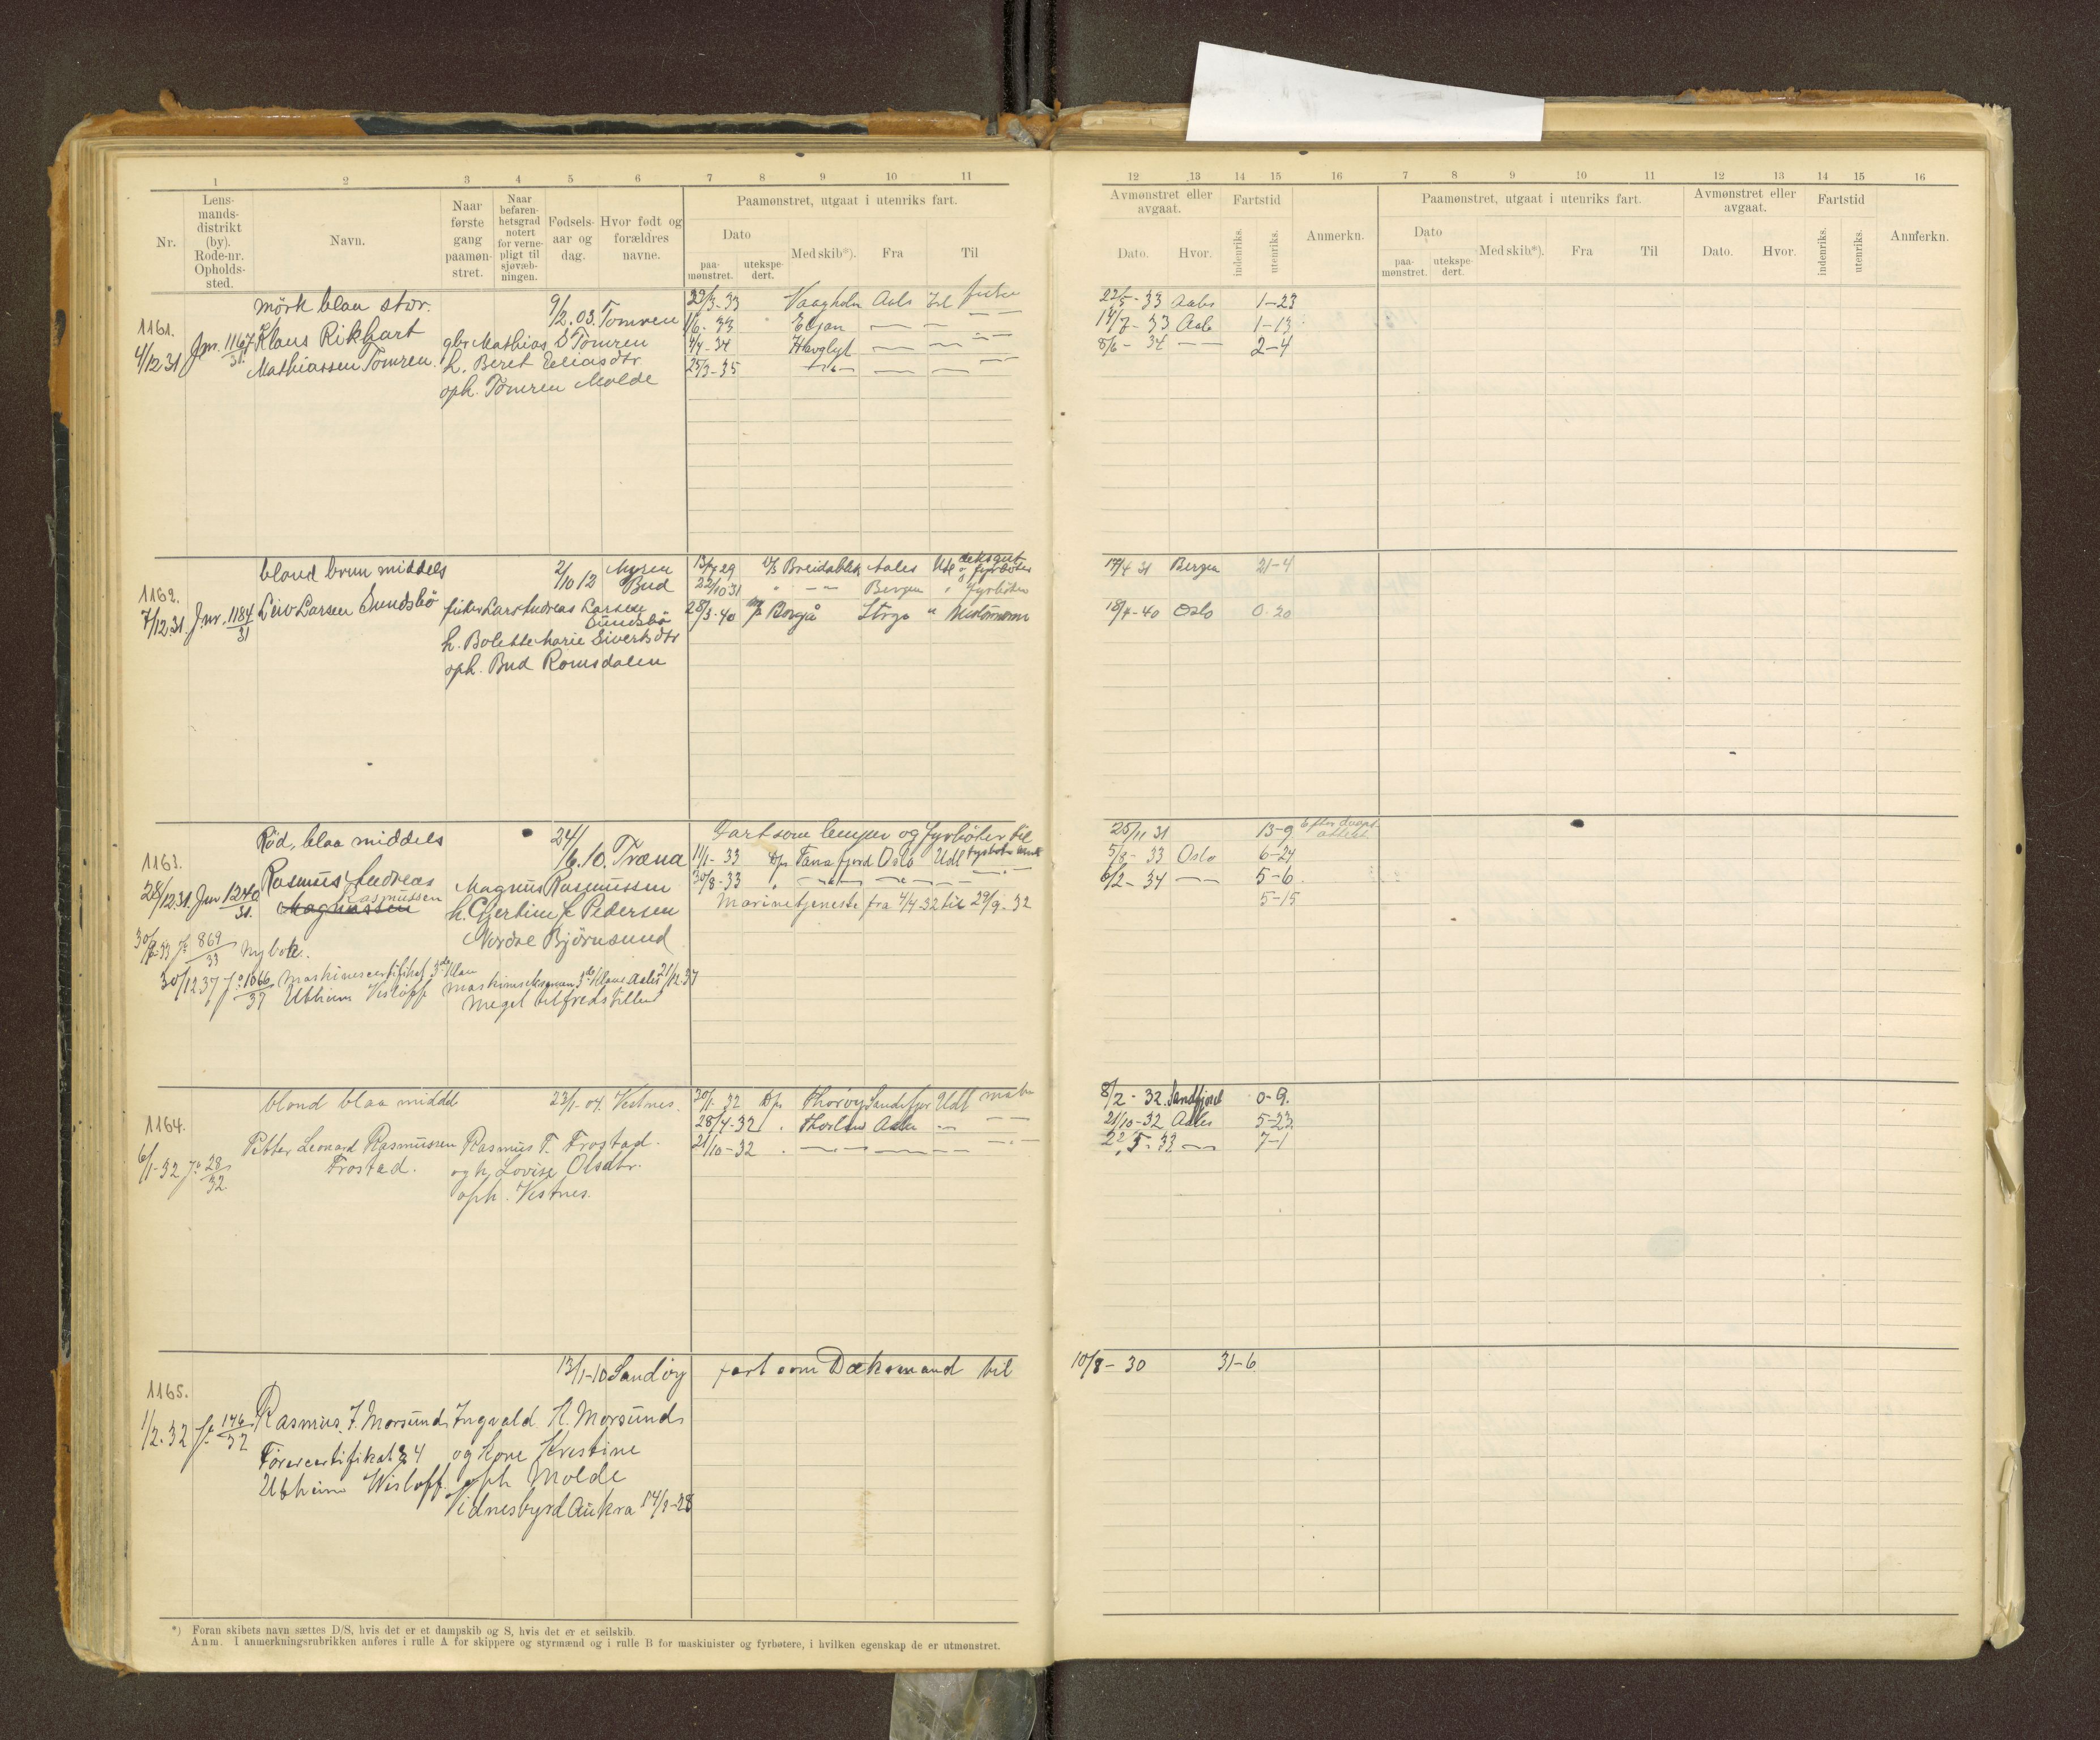 1 2 3 4 5 6 7 8 9 10 11
Nr.
Lens-
mands-
distrikt
(by).
Rode-nr.
Opholds-
sted.
Navn.
Naar
første
gang
paamøn-
stret.
Naar
befaren-
hetsgrad
notert
for verne-
pligt til
sjøvæb-
ningen.
Fødsels-
aar og
dag.
Hvor født og
forældres
navne.
Paamønstret, utgaat i utenriks fart.
Dato
paa-
mønstret.
utekspe-
dert.
Med skib*).
Fra
Til
12 13 14 15 16 7 8 9 10 11 12 13 14 15 16
Avmønstret eller
avgaat.
Dato.
Hvor.
Fartstid
indenriks.
utenriks.
Anmerkn.
Paamønstret, utgaat i utenriks fart.
Dato
paa-
mønstret.
utekspe-
dert.
Med skib*).
Fra
Til
Avmønstret eller
avgaat.
Dato.
Hvor.
Fartstid
indenriks.
utenriks.
Anmerkn.
mörk blaa stor.
9/2.03. Tomren
1161.
4/12 31 Jnr. 1167/31 Klaus Rikhart
Mathiassen Tomren.
gbr. Mathias S Tomren
h. Beret Eliasdtr
oph. Tomren Molde
22/3-33 Vaagholm Aals Isl fiske
1/6-33 Eljan — —
4/4-34 Havglyt — —
25/3-35 — " — — —
22/5-33 Aals 1-23
14/7-33 Aals 1-13
8/6-34 — — 2-4
blond brun middels
2/10 12 Myren
Bud
1162.
7/12 31. Jnr. 1184/31 Leiv Larsen Sundsbö
fisker Lars Andreas Larsen
Sundsbö
h. Bolette Marie Sivertsdtr
oph. Bud Romsdalen
13/7 29 D/S Breidablik Aales Utl dæksgut
og fyrböter
22/10 31 " — " — Bergen " fyrböter
28/3-40 Borgå " Motormann
17/4 31 Bergen 21-4
18/4-40 Oslo 0-20
Röd, blaa middels
24/6.10. Træna
1163.
28/12 31. Jnr 1240/31.
Rasmus Andreas
Rasmussen
Magnussen
Magnus Rasmussen
h. Hjertine f. Pedersen
Nordre Björnsund
30/8-33 Jr 869/33 Ny bok.
30/12 37 Jr 1066/37 Maskinistcertifikat 3de klasse
Utheim Wisløff
maskinisteksamen 3de klasse Aales 21/12 37
Meget tilfredsstillende
Fart som lemper og fyrböter til
11/1-33 D/s Tanafjord Oslo Utl fyrböter
30/8-33 " — " — — " — —
Marinetjeneste fra 4/4 32 til 29/9-32
25/11 31 13-9 Efter
attest
5/8-33 Oslo 6-24
6/2-34 — — 5-6
5-15
blond blaa middels
23/1-04. Vestnes.
1164.
6/1-32 Jr 28/32
Petter Leonard Rasmussen
Frostad.
Rasmus T. Frostad.
og h. Lovise Olsdtr.
oph. Vestnes.
30/1-32 D/s Thoröy Sandefjor Utl matr
28/4-32 " Aales — " —
21/10-32 " — " — — —
8/2-32. Sandfjord 0-9.
21/10-32 Aales 5-23
22/5-33 — " — 7-1
13/1-10 Sandöy
1165.
1/2-32 Jr. 146/32
Rasmus I. Morsund
Förercertifikat 34
Utheim Wisløff.
Ingvald K. Morsund
og kone Kristine
oph Molde
Vidnesbyrd Aukra 14/2-28
fart som Dæksmand til
10/8-30 31-6
*) Foran skibets navn sættes D/S, hvis det er et dampskib og S, hvis det er et seilskib.
Anm. I anmerkningsrubrikken anføres i rulle A for skippere og styrmænd og i rulle B for maskinister og fyrbøtere, i hvilken egenskap de er utmønstret.